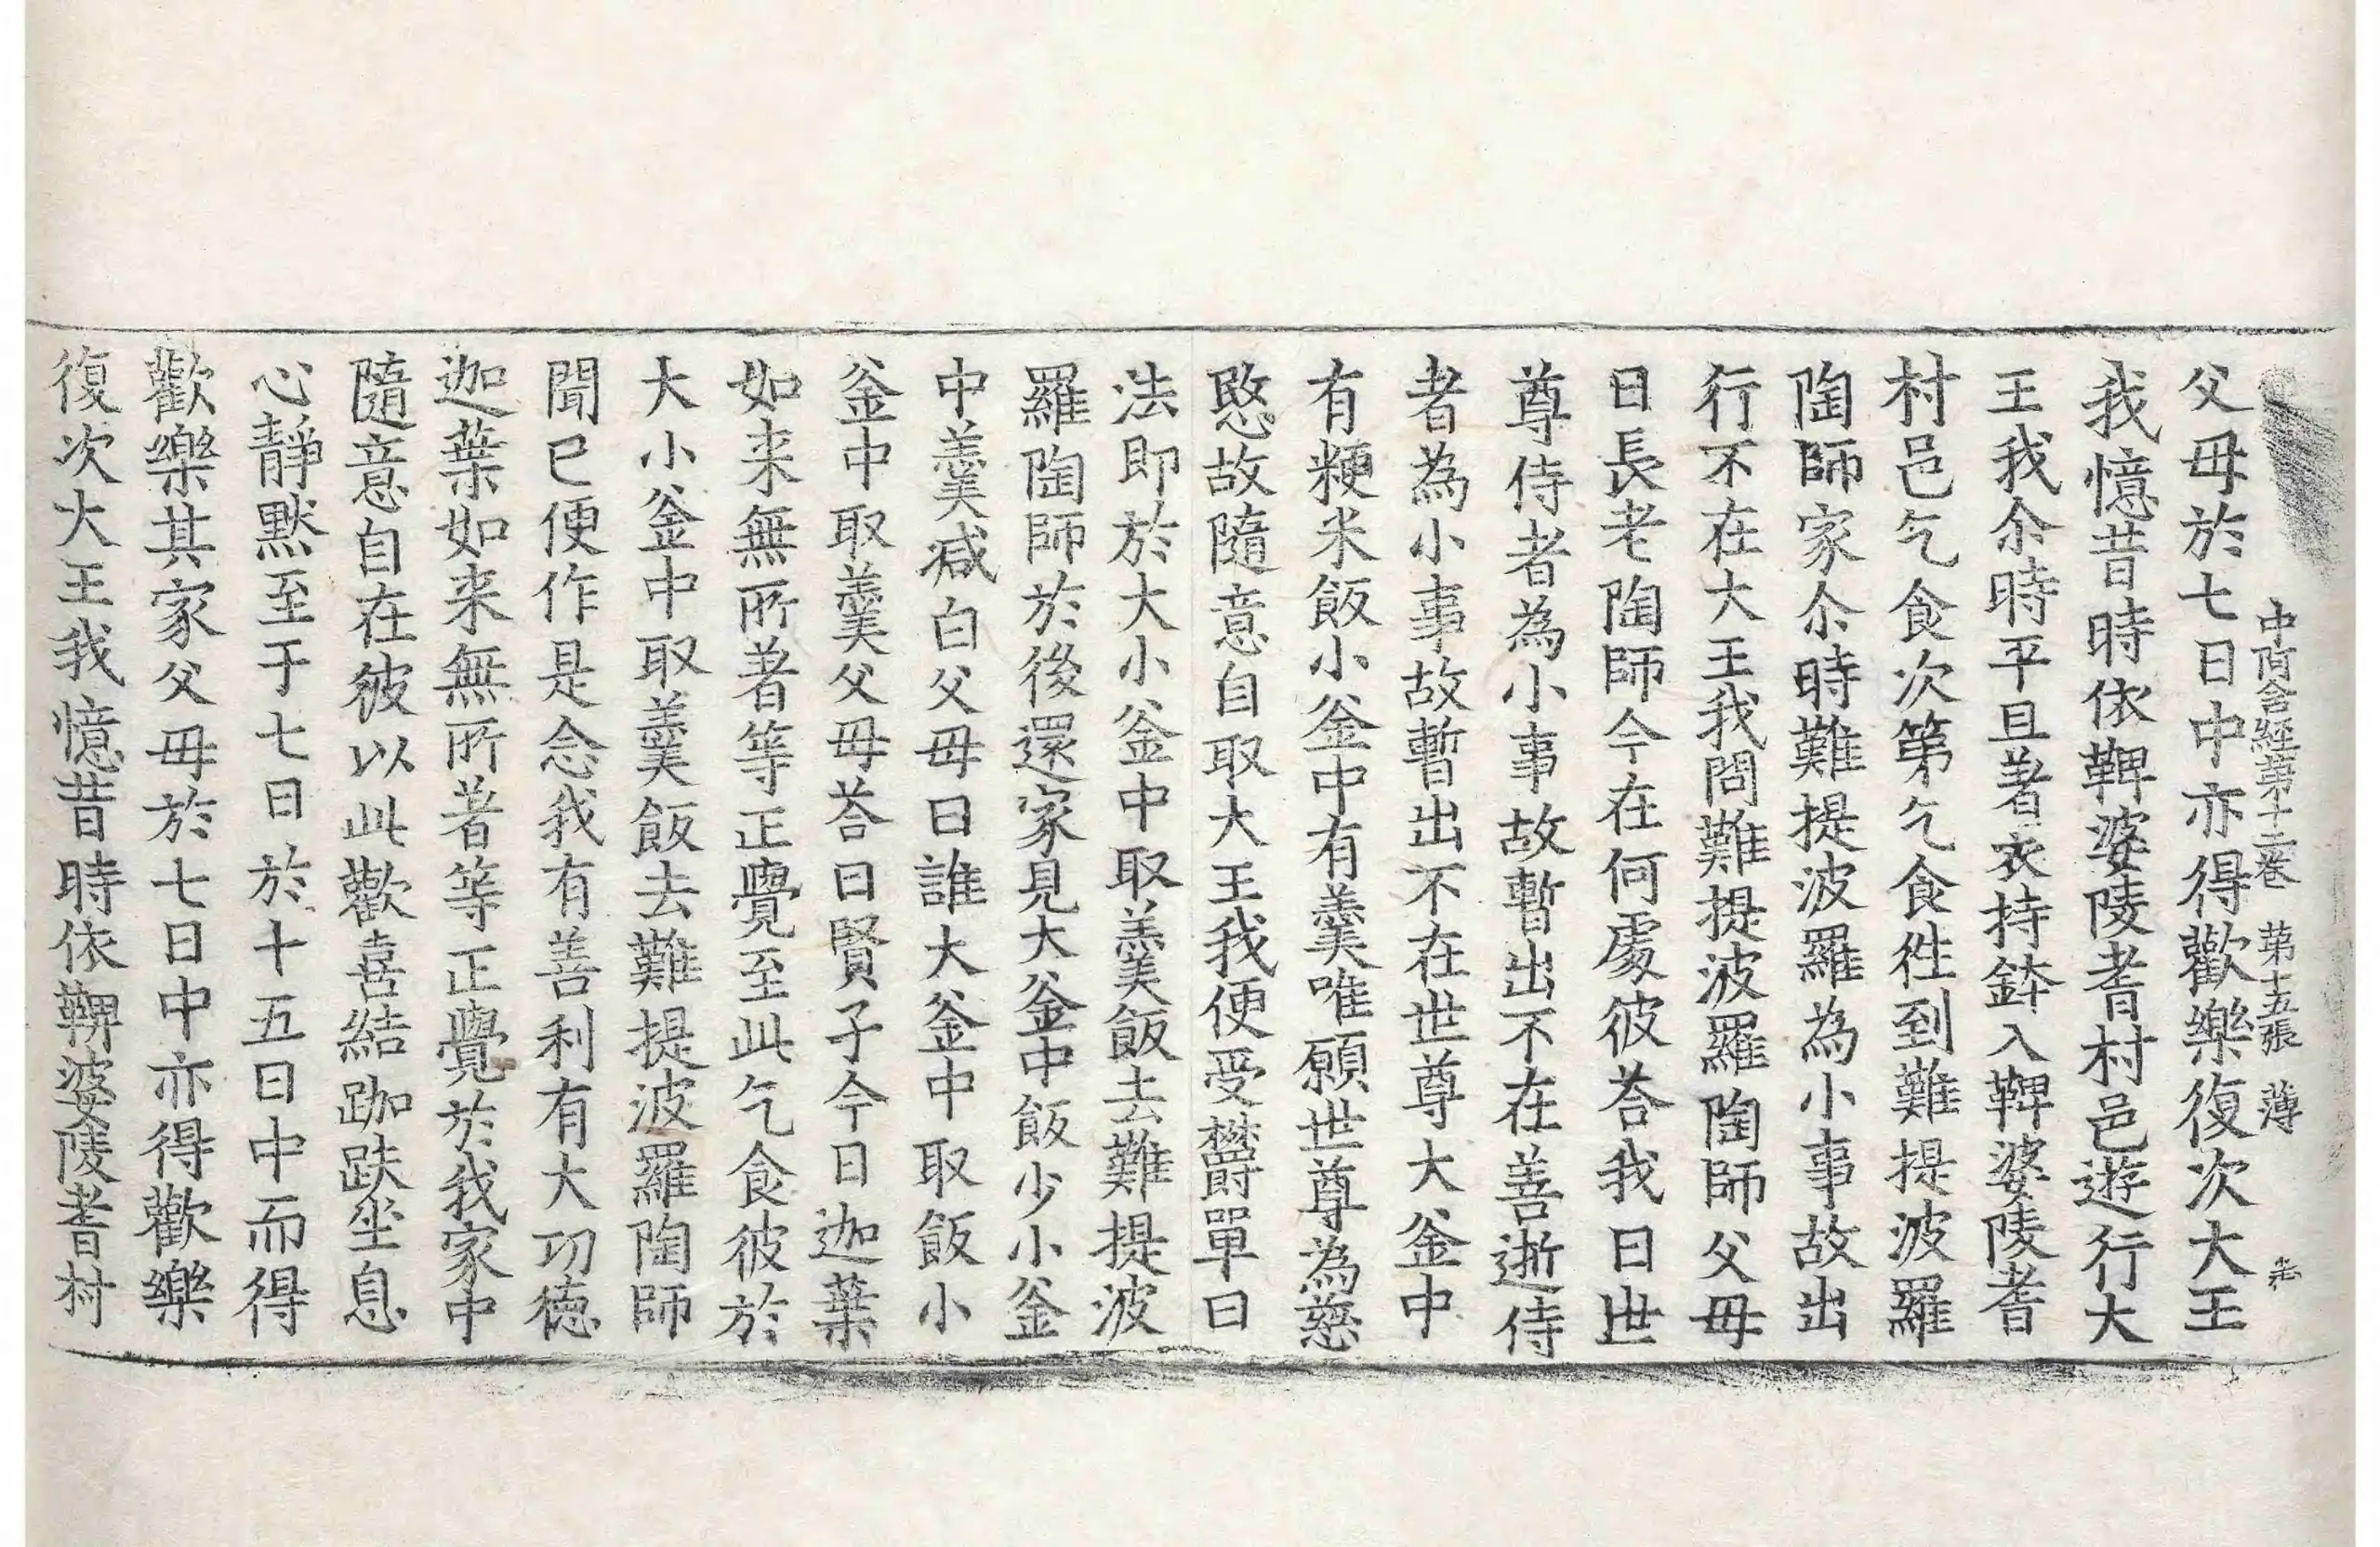 中阿含經第十二卷 第十五張 薄
父母於七日中亦得歡樂復次大王
我憶昔時依鞞婆陵耆村邑遊行大
王我尒時平旦著衣持鉢入鞞婆陵耆
村邑乞食次第乞食徃到難提波羅
陶師家尒時難提波羅為小事故出
行不在大王我問難提波羅陶師父母
曰長老陶師今在何處彼荅我曰世
尊侍者為小事故暫出不在善逝侍
者為小事故暫出不在世尊大釜中
有粳米飯小釜中有羹唯願世尊為慈
愍故隨意自取大王我便受欝單曰
法即於大小釜中取羹飯去難提波
羅陶師於後還家見大釜中飯少小釜
中羹減白父母曰誰大釜中取飯小
釜中取羹父母荅曰賢子今日迦葉
如来無所著等正覺至此乞食彼於
大小釜中取羹飯去難提波羅陶師
聞已便作是念我有善利有大功德
迦葉如来無所著等正覺於我家中
隨意自在彼以此歡喜結跏趺坐息
心靜默至于七日於十五日中而得
歡樂其家父母於七日中亦得歡樂
復次大王我憶昔時依鞞婆陵耆村